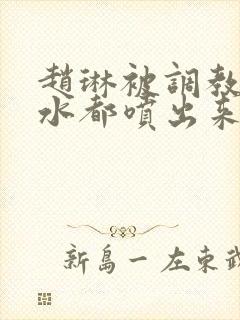 趙琳被調教
水都噴出来
新島一 左東武